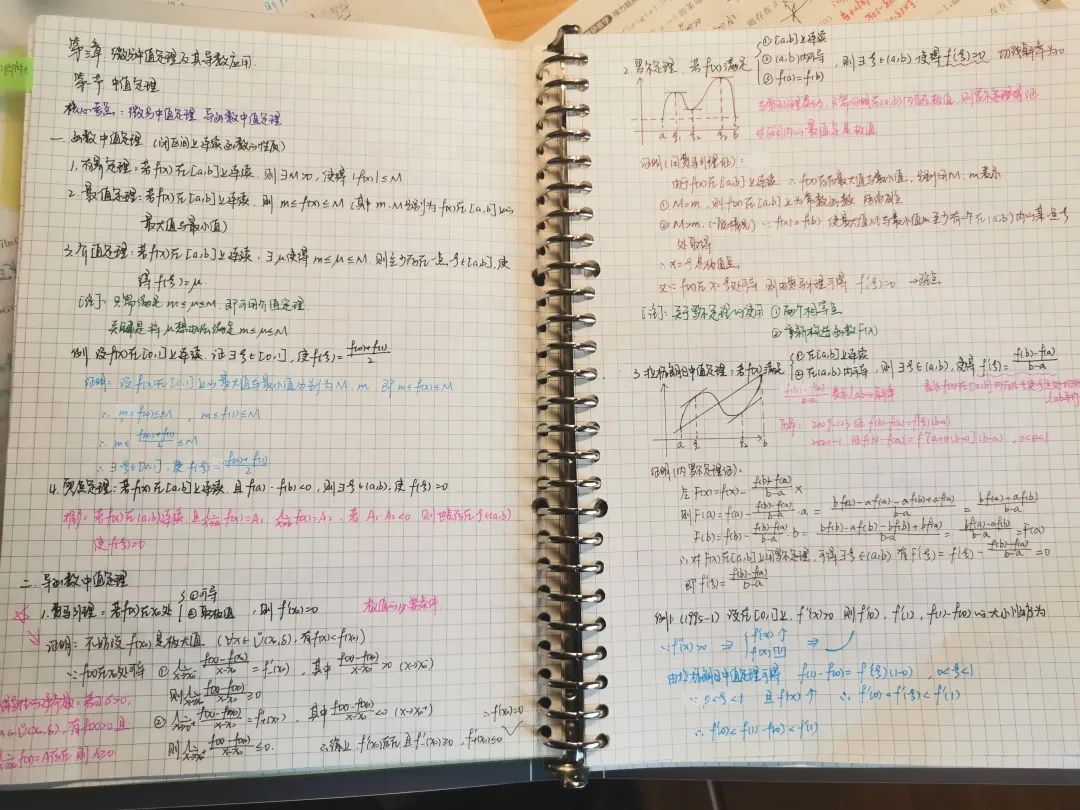 第三章 微分中值定理及其导数应用.
第一节 中值定理
核心考点：微分中值定理 与函数中值定理
一. 函数中值定理 (闭区间上连续函数的性质)
1. 有界定理：若f(x)在[a,b]上连续. 则∃M>0, 使得 |f(x)|≤M
2. 最值定理：若f(x)在[a,b]上连续. 则 m≤f(x)≤M (其中 m.M分别为f(x)在[a,b]上的
最大值与最小值)
3. 介值定理：若f(x)在[a,b]上连续. ∃μ使得 m≤μ≤M. 则至少存在一点ξ∈[a,b],使
得 f(ξ)=μ
[注]：只需满足 m≤μ≤M. 即可用介值定理
关键是将μ想办法满足 m≤μ≤M
例 设f(x)在[0,1]上连续. 证∃ξ∈[0,1], 使f(ξ)=(f(0)+f(1))/2
证明：设f(x)在[0,1]上的最大值与最小值分别为M, m 即 m≤f(x)≤M
∴ m≤f(0)≤M , m≤f(1)≤M
∴ m≤(f(0)+f(1))/2≤M
∴ ∃ξ∈[0,1], 使f(ξ)=(f(0)+f(1))/2
4. 零点定理：若f(x)在[a,b]上连续, 且f(a)·f(b)<0, 则∃ξ∈(a,b), 使f(ξ)=0
推广：若f(x)在(a,b)连续, 且 lim f(x)=A₁, lim f(x)=A₂, 若 A₁·A₂<0 则 存在ξ∈(a,b)
使f(ξ)=0
二. 导函数中值定理
1. 费马引理：若f(x)在x₀处 { ①可导 ②取极值 , 则f'(x₀)=0 极值的必要条件
证明：不妨设 f(x₀)是极大值 (∀x∈Ů(x₀,δ), 有f(x)<f(x₀))
∵f(x)在x₀处可导 ① lim(x→x₀⁻) (f(x)-f(x₀))/(x-x₀)=f'₋(x₀), 其中 (f(x)-f(x₀))/(x-x₀)>0 (x→x₀⁻)
则 lim(x→x₀⁻) (f(x)-f(x₀))/(x-x₀)≥0
② lim(x→x₀⁺) (f(x)-f(x₀))/(x-x₀)=f'₊(x₀), 其中 (f(x)-f(x₀))/(x-x₀)<0 (x→x₀⁺) ∴f'(x₀)=0
则 lim(x→x₀⁺) (f(x)-f(x₀))/(x-x₀)≤0. ∴综上 f'(x₀)存在且f'₋(x₀)≥0, f'₊(x₀)≤0
若∃δ>0,
x∈Ů(x₀,δ), 有f(x)≥0 且
lim f(x)=A存在 则 A≥0
2. 罗尔定理 若f(x)满足 { ①[a,b]上连续 ②(a,b)内可导 ③f(a)=f(b) , 则∃ξ∈(a,b) 使得f'(ξ)=0 切线斜率为0
a ξ₁ ξ₂ b
区间内的最值点是极值
证明(用费马引理证)：
由于f(x)在[a,b]上连续 ∴f(x)存在最大值与最小值, 分别用M. m表示
① M=m, 则f(x)在[a,b]上为常数函数 结论成立
② M>m (一般情况) ∵f(a)=f(b) 使最大值M与最小值m至少有一个在(a,b)内的某一点ξ
处取得
∴ x=ξ是极值点
又∵f(x)在x=ξ处可导 则由费马引理可得 f'(ξ)=0
[注]：关于罗尔定理的使用 ①两个相等点
②重新构造函数F(x)
3. 拉格朗日中值定理：若f(x)满足 { ①在[a,b]上连续 ②在(a,b)内可导 , 则∃ξ∈(a,b), 使得 f'(ξ)=(f(b)-f(a))/(b-a)
a ξ₁ ξ₂ b
(f(b)-f(a))/(b-a) 表示lab的斜率
2009-1 证 f(b)-f(a)=f'(ξ)(b-a)
f(b)-f(a)=f'[a+θ(b-a)](b-a) , 0<θ<1
证明(内罗尔定理证).
令F(x)=f(x)-(f(b)-f(a))/(b-a) x
则F(a)=f(a)-(f(b)-f(a))/(b-a)·a=(bf(a)-af(a)-af(b)+af(a))/(b-a)=(bf(a)-af(b))/(b-a)
F(b)=f(b)-(f(b)-f(a))/(b-a)·b=(bf(b)-af(b)-bf(b)+bf(a))/(b-a)=(bf(a)-af(b))/(b-a)=F(a)
∴对F(x)在[a,b]上用罗尔定理, 可得∃ξ∈(a,b) 有F'(ξ)=f'(ξ)-(f(b)-f(a))/(b-a)=0
即 f'(ξ)=(f(b)-f(a))/(b-a)
例1: (1995-1) 设在[0,1]上, f''(x)>0 则f'(0), f'(1), f(1)-f(0)的大小顺序为
∵f''(x)>0 ⇒ { f'(x)↑ f(x)凹 ⇒
由拉格朗日中值定理可得 f(1)-f(0)=f'(ξ)(1-0) , 0<ξ<1
∵ 0<ξ<1 且f'(x)↑ ∴ f'(0)<f'(ξ)<f'(1)
∴ f'(0)<f(1)-f(0)<f'(1)